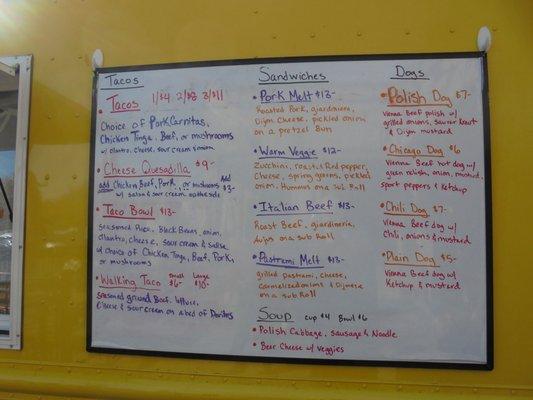 Tacos
• Tacos 1/$4 2/$8 3/$11
Choice of Pork Carnitas,
Chicken Tinga, Beef, or mushrooms
w/ cilantro, cheese, sour cream & onion
• Cheese Quesadilla $9-
add Chicken, Beef, Pork, or mushrooms Add $3-
w/ salsa & sour cream on the side
• Taco Bowl $13-
Seasoned Rice, Black Beans, onion,
cilantro, cheese, sour cream & salsa
w/ choice of Chicken Tinga, Beef, Pork,
or mushrooms
• Walking Taco Small $6- Large $10-
seasoned ground Beef, lettuce,
Cheese & sour cream on a bed of Doritos
Sandwiches
• Pork Melt $13-
Roasted Pork, giardiniera,
Dijon Cheese, pickled onion
on a pretzel Bun
• Warm Veggie $12-
Zucchini, roasted Red pepper,
Cheese, spring greens, pickled
onion, Hummus on a Sub Roll
• Italian Beef $13-
Roast Beef, giardineria,
aujus on a sub Roll
• Pastrami Melt $13-
grilled pastrami, cheese,
Carmelized onions & Dijonese
on a sub Roll
Soup cup $4 Bowl $6
• Polish Cabbage, sausage & Noodle
• Beer Cheese w/ Veggies
Dogs
• Polish Dog $7-
Vienna Beef polish w/
grilled onions, sauer kraut
& Dijon mustard
• Chicago Dog $6
Vienna Beef hot dog w/
green relish, onion, mustard,
sport peppers & Ketchup
• Chili Dog $7-
Vienna Beef dog w/
Chili, onions & mustard
• Plain Dog $5-
Vienna Beef dog w/
Ketchup & mustard